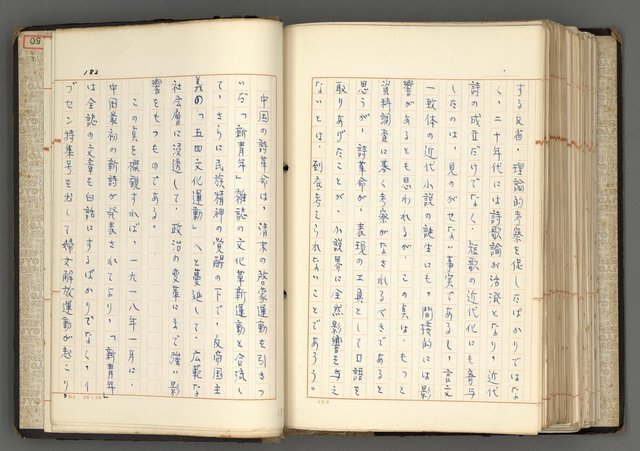 する反省・理論的考察を促したばかりではな
く、二十年代には詩歌論が活溌となり、近代
詩の成立だけでなく、短歌の近代化にも寄与
したのは、見のがせない事実であるし、言文
一致体の近代小説の誕生にも、間接的には影
響があるとも思われるが、この点は、もっと
資料調査に基く考察がなされるべきであると
思うが、詩革命が、表現の工具として口語を
取りあげたことが、小説界に全然影響を与え
ないとは、到底考えられないことであろう。
中国の詩革命は、清末の啓蒙運動を引きつ
いだ「新青年」雑誌の文化革新運動と合流し
て、さらに民族精神の覚醒の下で、反帝国主
義の「五四文化運動」へと蔓延して、広範な
社会層に浸透して、政治の変革にまで強い影
響をもつものである。
この点を概観すれば、一九一八年一月に、
中国最初の新詩が発表されてより、「新青年」
は全誌の文章を白話にするばかりでなく、イ
プセン特集号を出して婦女解放運動が起こり、
182
50